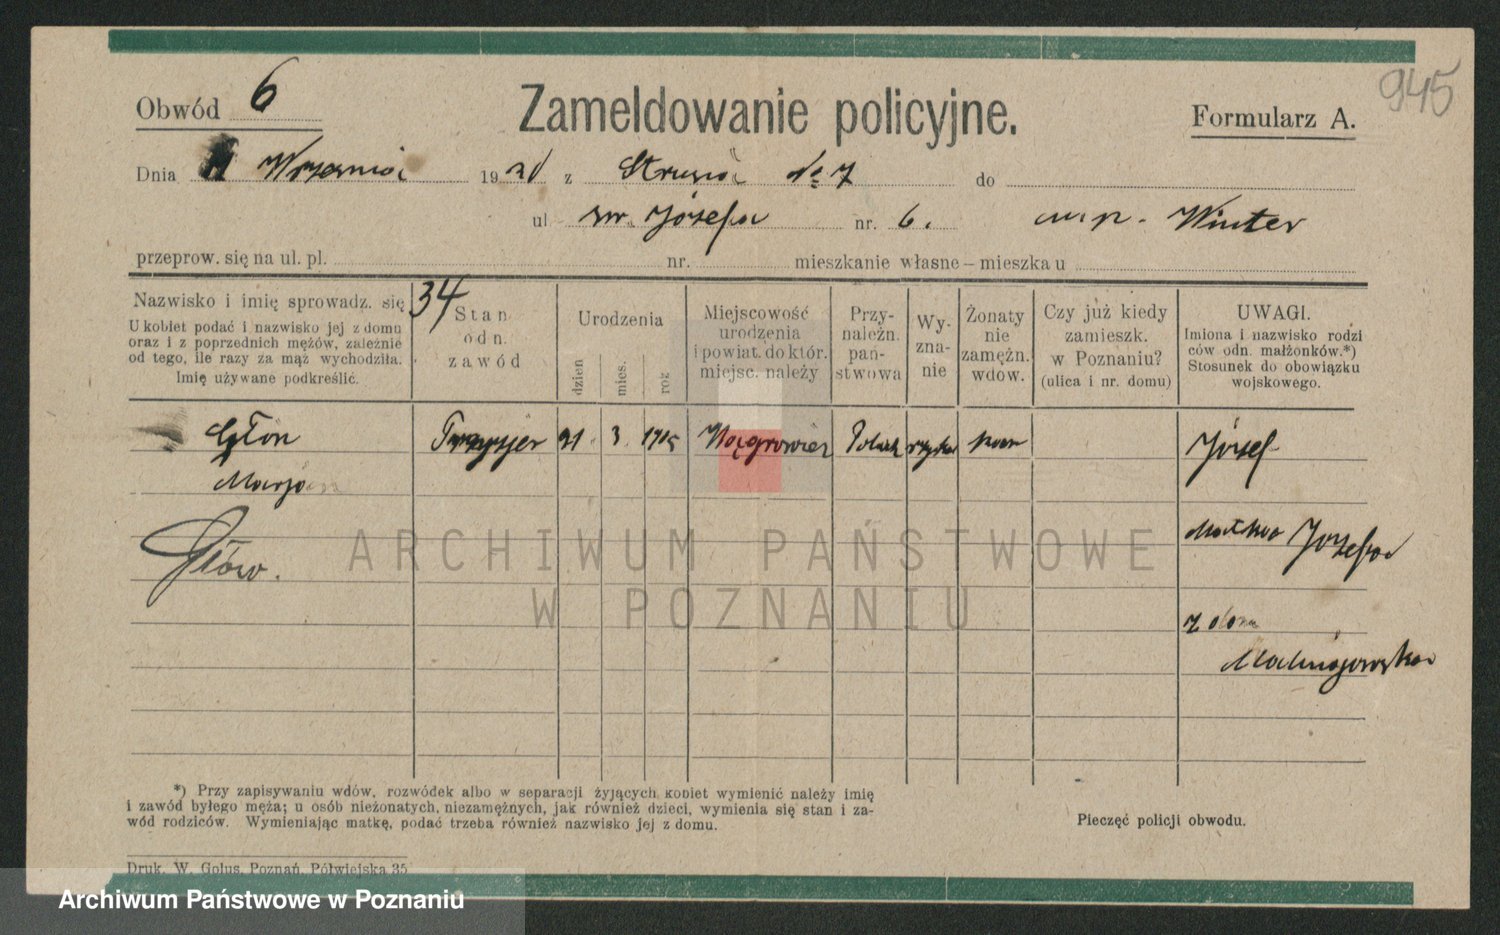 945
Obwód 6
Zameldowanie policyjne.
Formularz A.
Dnia Września 19 z Strusia № 7 do
ul św. Józefa nr. 6. u p. Winter
przeprow. się na ul. pl. nr. mieszkanie własne – mieszka u
34
Nazwisko i imię sprowadz. się
U kobiet podać i nazwisko jej z domu
oraz i z poprzednich mężów, zależnie
od tego, ile razy za mąż wychodziła.
Imię używane podkreślić.
Stan
odn.
zawód
Urodzenia
dzień
mies.
rok
Miejscowość
urodzenia
i powiat. do któr.
miejsc. należy
Przy-
należn.
pań-
stwowa
Wy-
zna-
nie
Żonaty
nie
zamężn.
wdow.
Czy już kiedy
zamieszk.
w Poznaniu?
(ulica i nr. domu)
UWAGI.
Imiona i nazwisko rodzi
ców odn. małżonków.*)
Stosunek do obowiązku
wojskowego.
Głon 3 Wągrowiec Polak Józef
Marja
Głów. Matka Józefa
z domu
ARCHIWUM PAŃSTWOWE
W POZNANIU
*) Przy zapisywaniu wdów, rozwódek albo w separacji żyjących kobiet wymienić należy imię
i zawód byłego męża; u osób nieżonatych, niezamężnych, jak również dzieci, wymienia się stan i za-
wód rodziców. Wymieniając matkę, podać trzeba również nazwisko jej z domu.
Pieczęć policji obwodu.
Druk. W. Golus, Poznań, Półwiejska 35
Archiwum Państwowe w Poznaniu